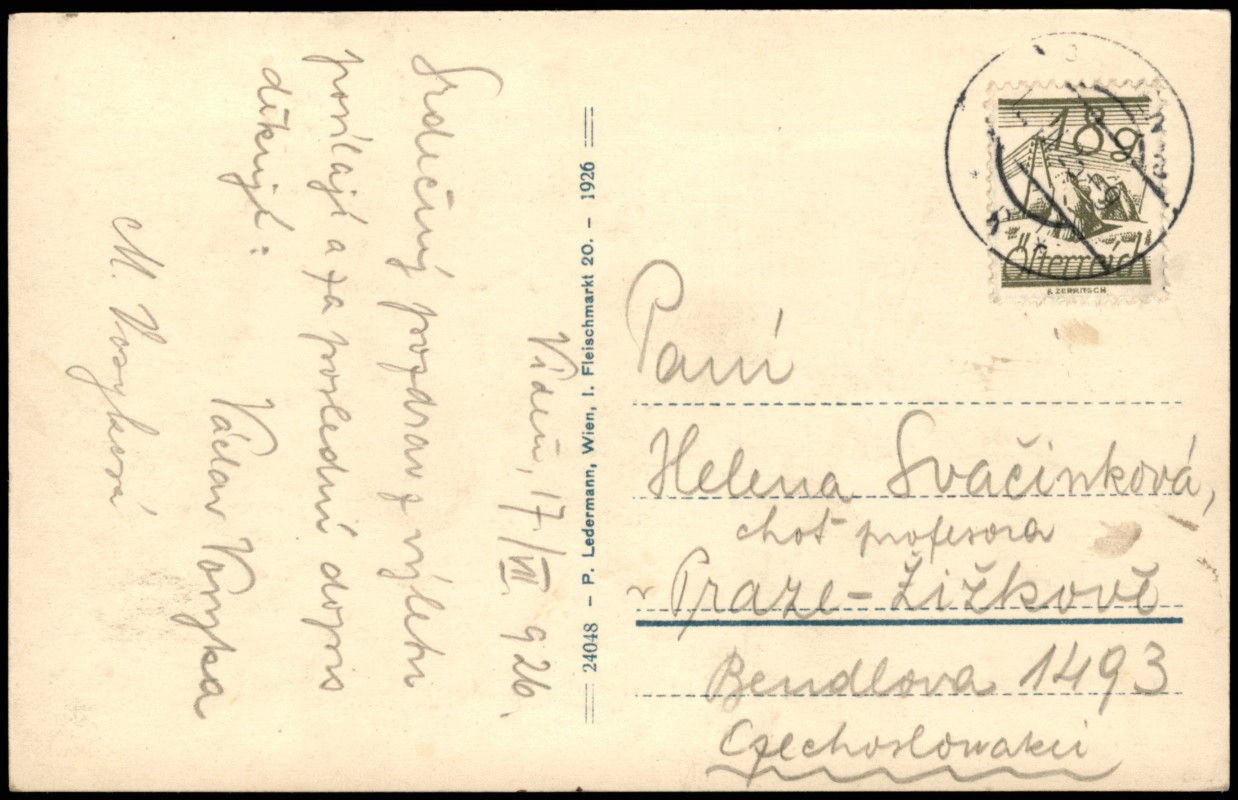 Vídeň, 17/VII. 926.
Srdečný pozdrav z výletu
posílají a za poslední dopis
děkují:
Václav Vosyka
M. Vosyková
24048 – P. Ledermann, Wien, I. Fleischmarkt 20. – 1926
18g
Österreich
F. ZERRITSCH
Paní
Helena Svačinková,
choť profesora
v Praze-Žižkově
Bendlova 1493
Czechoslowakei